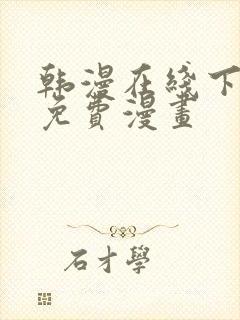 韩漫在线下
免費漫畫
石才學